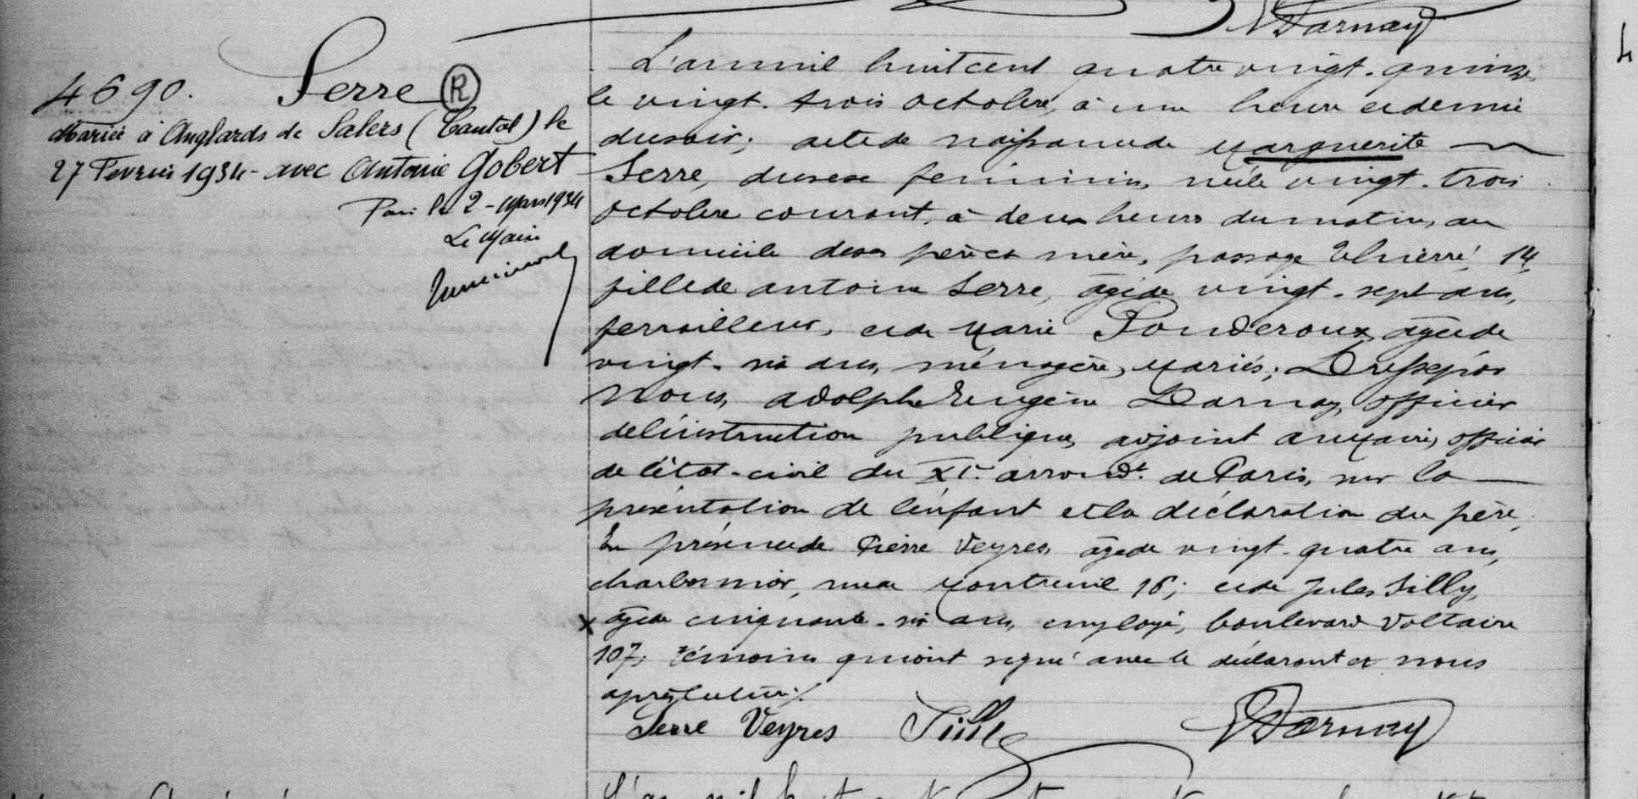 Darnay
4690. Serre R
Mariée à Anglards de Salers (Cantal) le
27 Février 1934 - avec Antoine Gobert
Paris le 2 - Mars 1934
Le Maire
L'an mil huit cent quatre vingt-quinze
le vingt-trois octobre, à une heure et demie
du soir; acte de naissance de Marguerite
Serre, du sexe féminin, née le vingt-trois
octobre courant, à deux heures du matin, au
domicile de ses père et mère, passage Thierré, 14,
fille de Antoine Serre, âgé de vingt-sept ans,
ferrailleur, et de Marie Ponderoux, âgée de
vingt-six ans, ménagère, mariés; Dressé par
Nous, Adolphe Eugène Darnay, officier
de l'instruction publique, adjoint au Maire, officier
de l'état-civil du XIe. arrondt. de Paris, sur la
présentation de l'enfant et la déclaration du père,
En présence de Pierre Veyres, âgé de vingt-quatre ans,
charbonnier, rue de Montreuil 16; et de Jules Silly,
x âgé de cinquante-six ans, employé, boulevard Voltaire
107; témoins qui ont signé avec le déclarant et nous
après lecture./.
Serre Veyres Silly Darnay